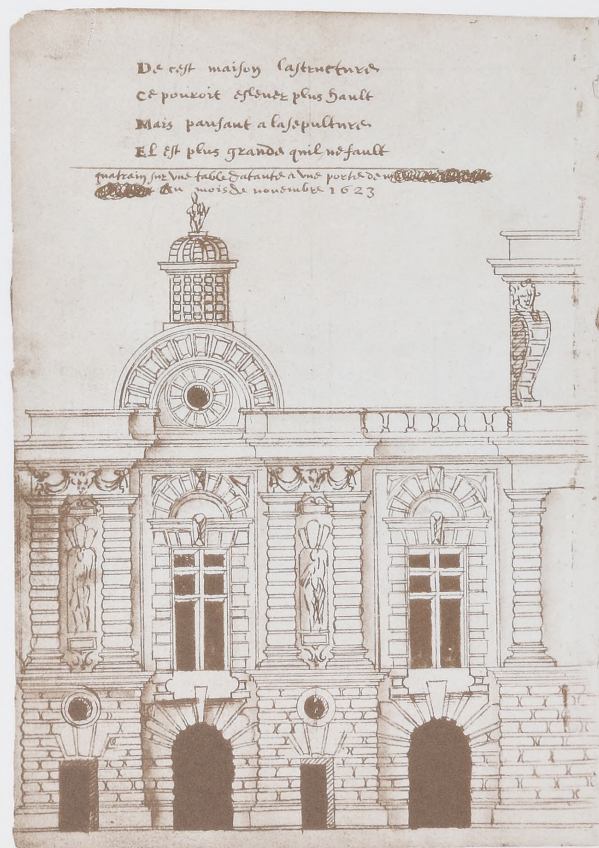 De cest maison lastructure
Ce pouroit eslever plus hault
Mais pansant a lasepulture
El est plus grande quil ne fault
quatrain sur une table datante a une porte de
Au mois de novembre 1623